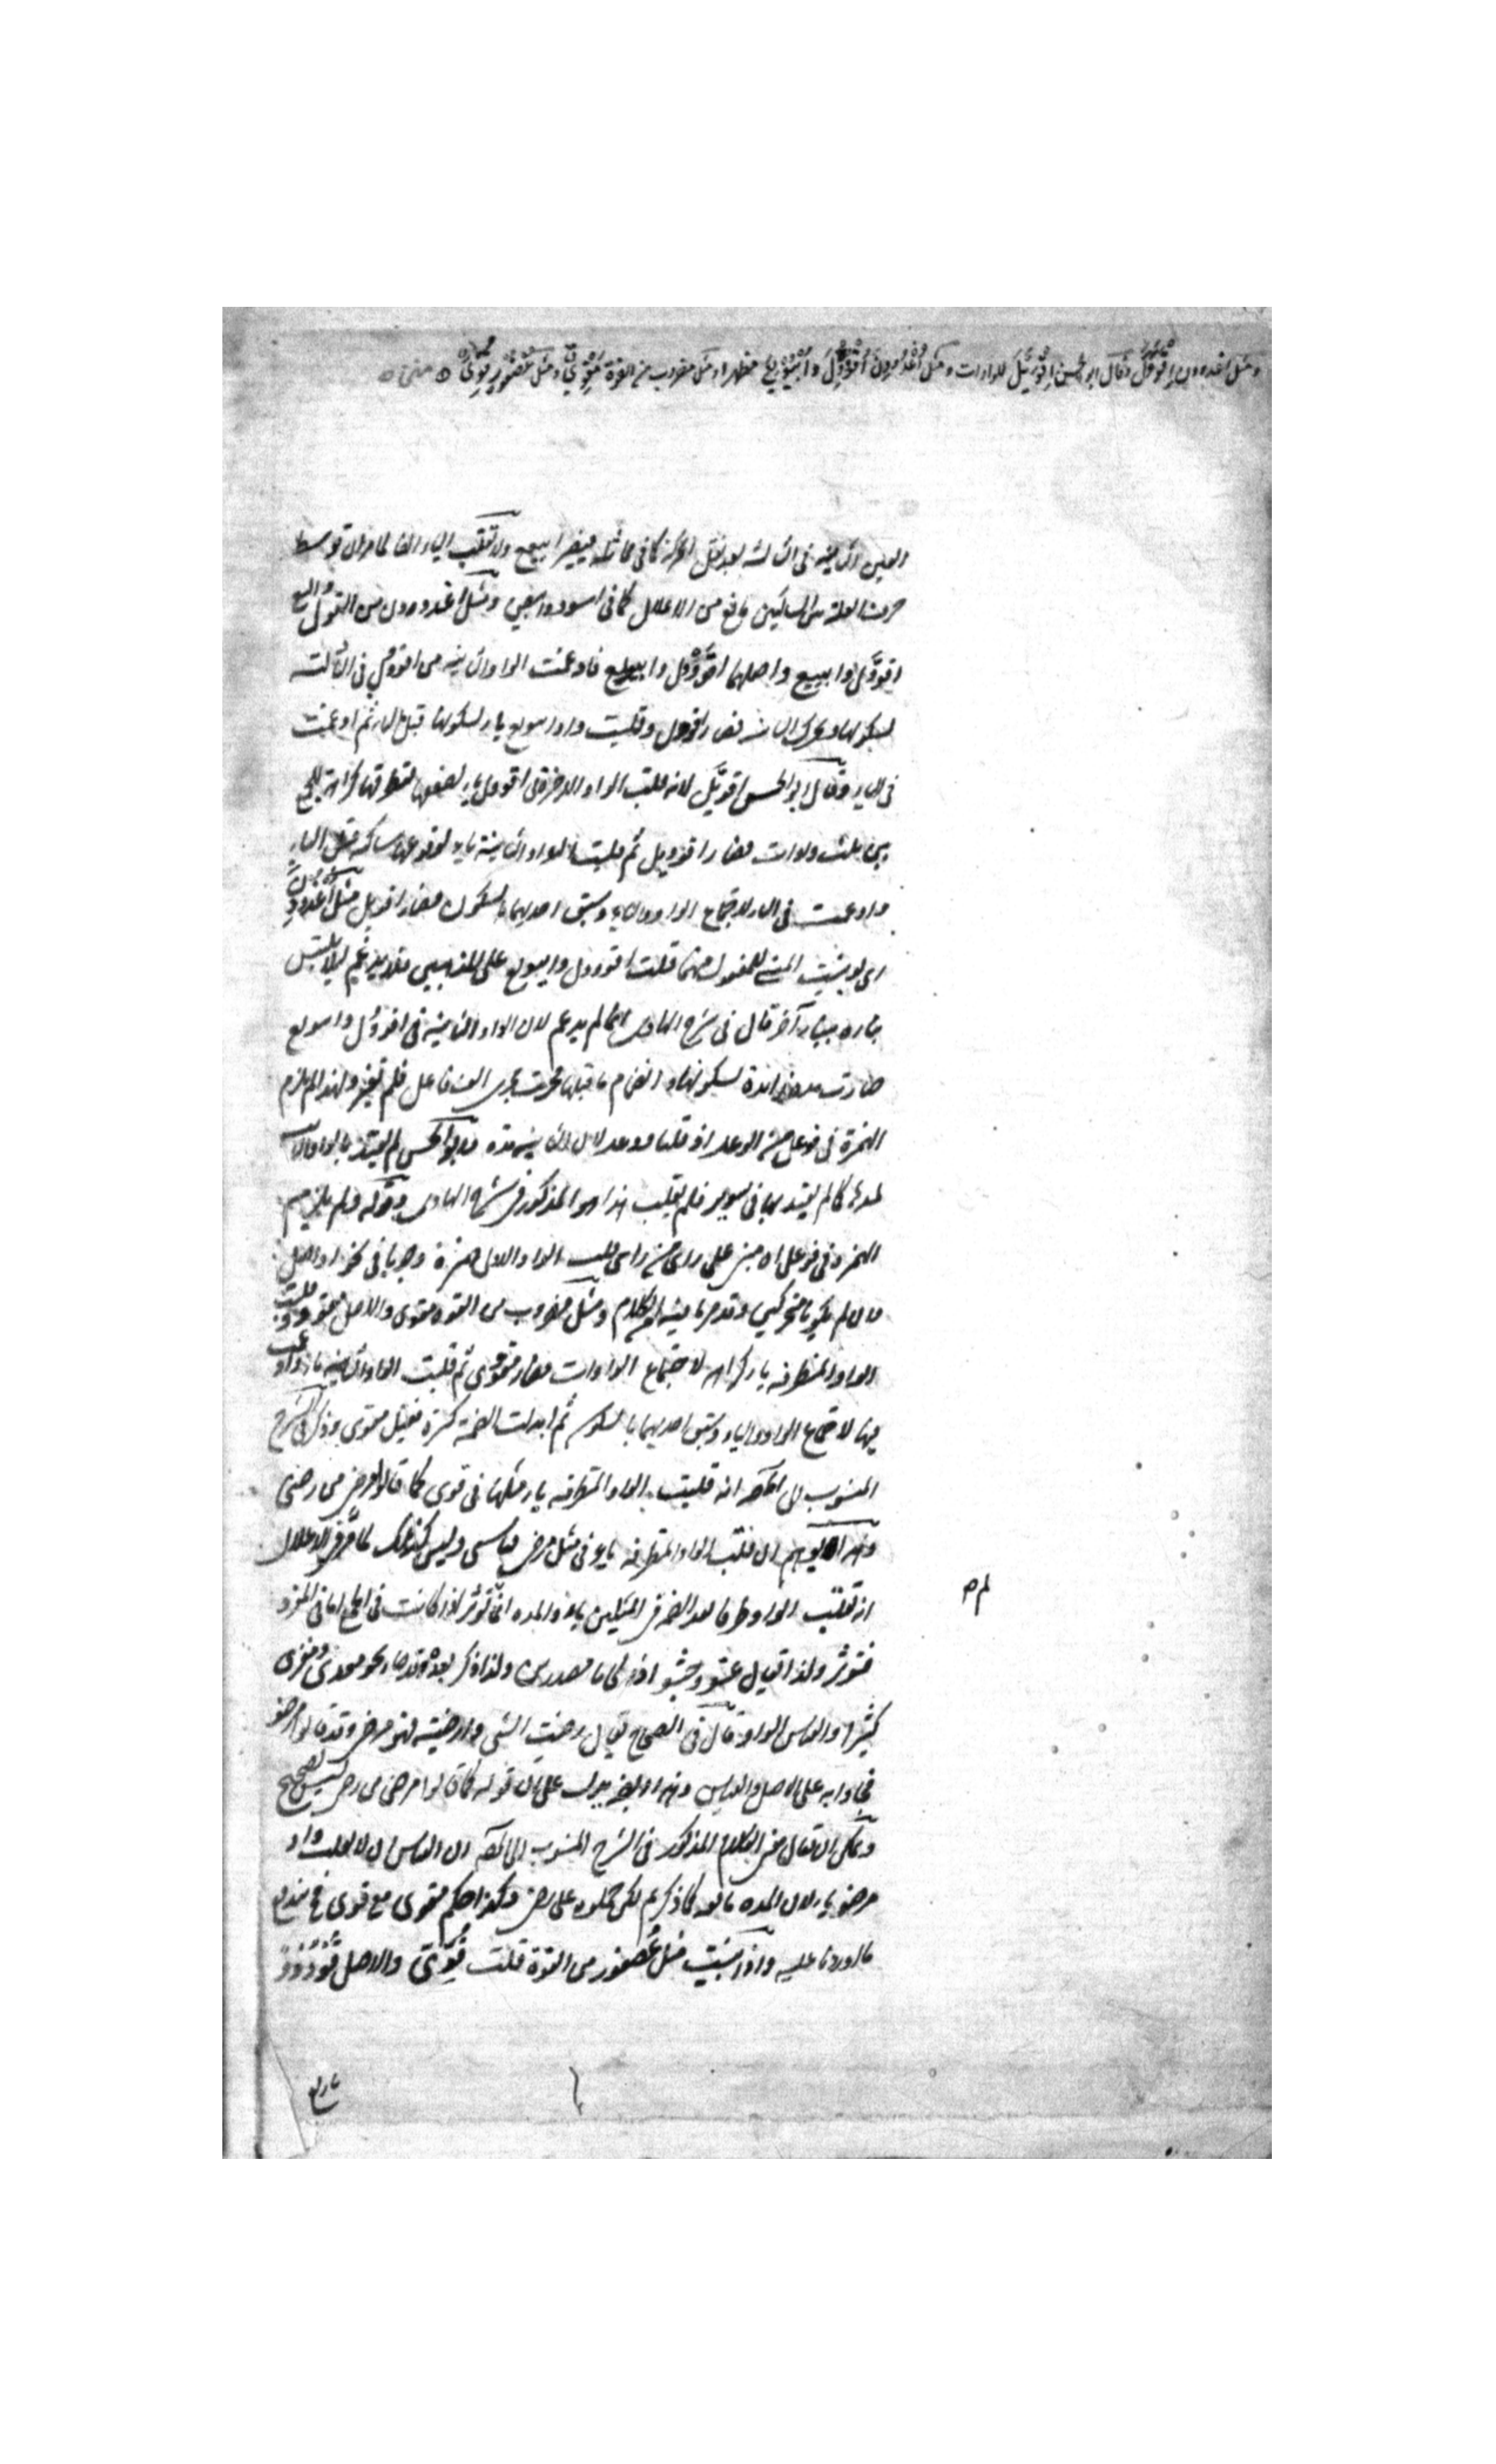 ومثل اغدودن اقوول وقال ابو الحسن اقويل للواوات ومثل اغدودن اقووول وابيويع مظهرا ومثل مضروب من القوة مقوي ومثل عصفور قوي
العين الثانية فى الثالثة بعد نقل الحركة كما فى مماثله فيصير ابيعع ولا تقلب الياء الفا لما مر ان توسط
حرف العلة بين الساكنين مانع من الاعلال كما فى اسود وابيض ومثل اغدودن من القول والبيع
اقوول وابييع واصلهما اقووول وابيويع فادغمت الواو الثانية من اقووول فى الثالثة
لسكونها وتحرك الثالثة فصار اقوول وقلبت واو ابيويع ياء لسكونها قبل الياء ثم ادغمت
فى الياء وقال ابو الحسن اقويل لانه قلب الواو الاخيرة فى اقووول ياء لضعفها لتطرفها كراهة للجمع
بين ثلث واوات فصار اقوويل ثم قلبت الواو الثانية ياء لوقوعها ساكنة قبل الياء
وادغمت فى الياء لاجتماع الواو والياء وسبق احديهما بالسكون فصار اقويل مثل اغدودن
اى لو بنيت المبنى للمفعول منهما قلت اقووول وابيويع على المذهبين فلا يدغم ليلا يلتبس
بناء ببناء آخر قال فى شرح الهادى انما لم يدغم لان الواو الثانية فى اقووول وابيويع
صارت مدة زائدة لسكونها وانضمام ما قبلها فجرت مجرى الف فاعل فلم تغير ولهذا لم يلزم
الهمزة فى فوعل من الوعد اذ قلنا ووعد لان الثانية مدة وابو الحسن لم يعتد بالواوات
لمدة كما لم يعتد بها فى سوير فلم يقلب هذا هو المذكور فى شرح الهادى وقوله ولم يلزم
الهمزة فى فوعل اه مبنى على راى من راى قلب الواو الاولى همزة وجوبا فى نحو اواصل
وان لم يكونا متحركين وقد مر ما فيه من الكلام ومثل مضروب من القوة مقوى والاصل مقووو قلبت
الواو المتطرفة ياء كراهة لاجتماع الواوات فصار مقووى ثم قلبت الواو الثانية ياء وادغمت
فيها لاجتماع الواو والياء وسبق احديهما بالسكون ثم ابدلت الضمة كسرة فقيل مقوى وذكر فى الشرح
المنسوب الى المصنف انه قلبت الواو المتطرفة ياء مثلها فى قوى كما قالوا مرضى من رضى
وهذا يوهم ان قلب الواو المتطرفة ياء فى مثل مرضى قياسى وليس كذلك لما مر فى الاعلال
انه تقلب الواو طرفا بعد الضمة فى المتمكن ياء والمدة انما تؤثر اذا كانت فى الجمع اما فى المفرد
فتؤثر ولذا يقال عتو وجثو اذا كانا مصدرين ولذا ذكر بعده وقد جاء نحو معدى ومغزى
كثيرا والقياس الواو قال فى الصحاح يقال رضيت الشئ وارتضيته فهو مرضى وقد قالوا مرضو
فجاوا به على الاصل والقياس وهذا ايضا يدل على ان قوله كما قالوا مرضى من رضى ليس بصحيح
ويمكن ان يقال معنى الكلام المذكور فى الشرح المنسوب الى المصنف ان القياس ان لا تقلب واو
مرضو ياء لان المدة مانعة كما ذكرتم لكن حملوه على رضى وكذا حكم مقوى مع قوى فح يندفع
ما اوردنا عليه واذا بنيت مثل عصفور من القوة قلت قوى والاصل قوووو